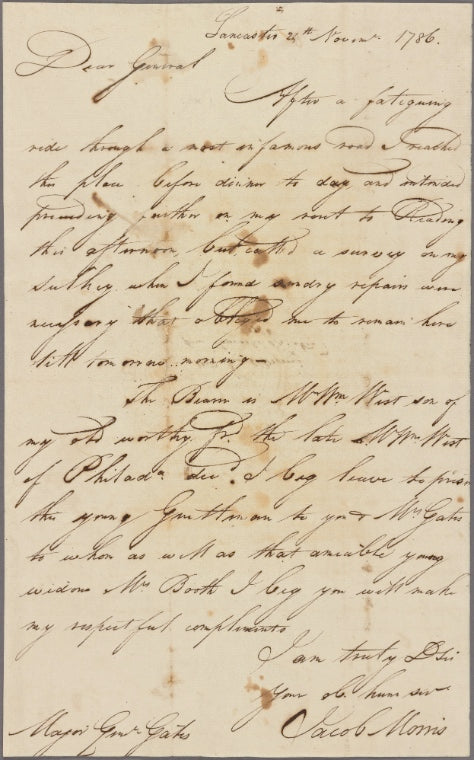 Lancaster 21th Novemr. 1786.
Dear General
After a fatiguing
ride through a most infamous road I reached
this place before dinner to day and intended
proceeding further on my rout to Reading
this afternoon, but called a survey on my
Sulkey when I found sundry repairs were
necessary that obliged me to remain here
till tomorrow morning –
The Bearer is Mr. Wm. West son of
my old worthy frd. the late Mr. Wm. West
of Philada. decd. I beg leave to
this young Gentleman to you & Mrs. Gates
to whom as well as that amiable young
widow Mrs. Booth I beg you will make
my respectful compliments
I am truly D Sir
Your ob. hum servt.
Major Genl. Gates Jacob Morris